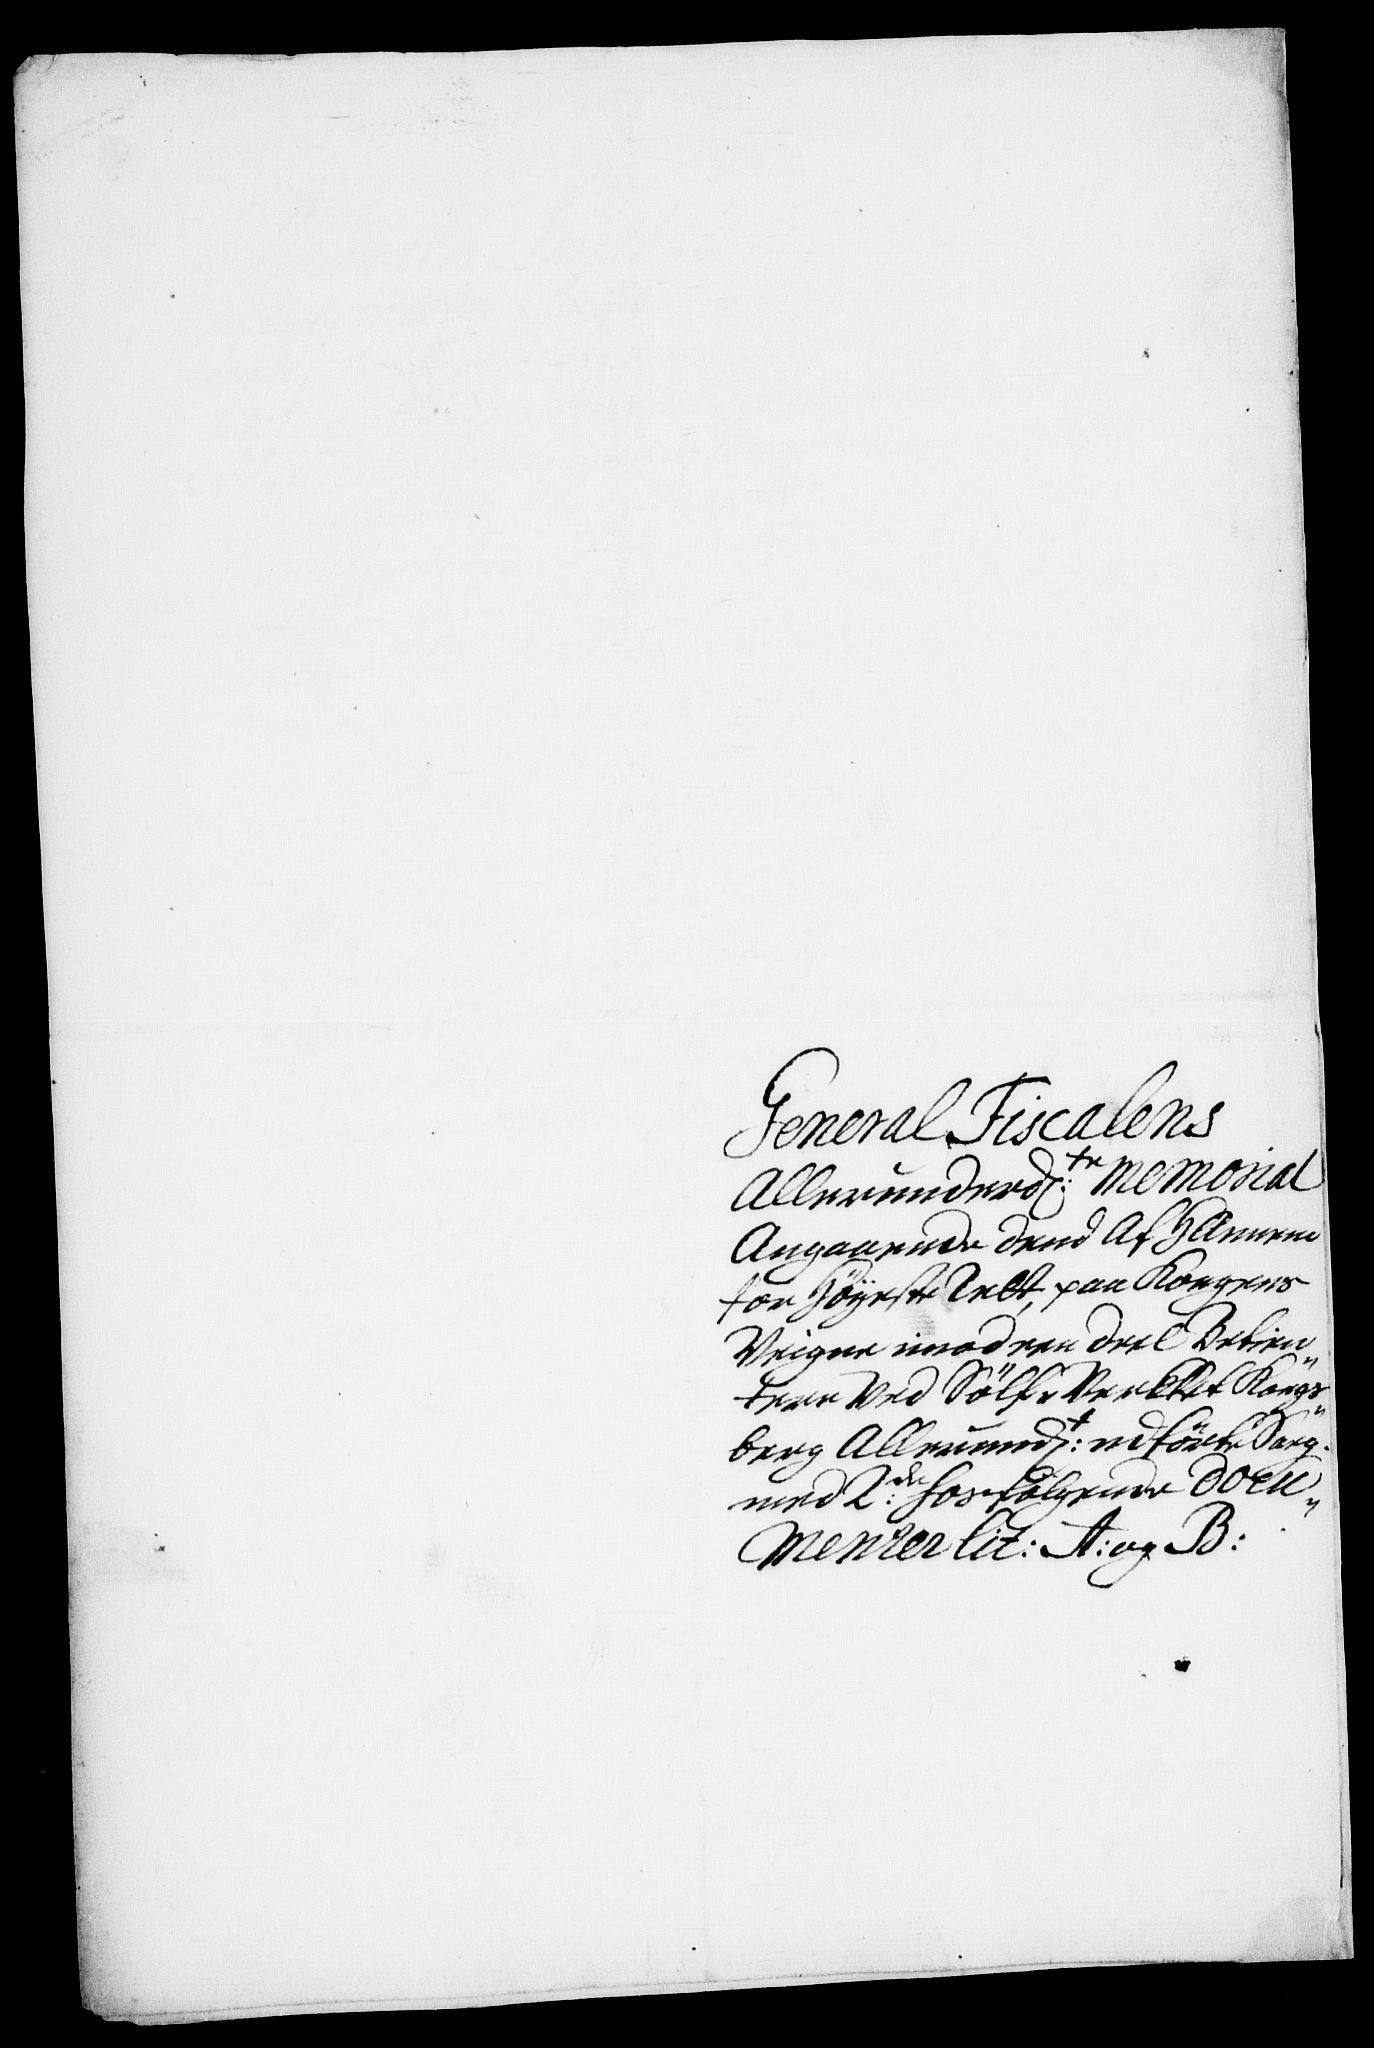 General Fiscalens
Allerunderd:te Memorial
Angaaende dend Af Hannem
for Høÿeste Rett, paa Kongens
Veigne imod een deel Betien„
tere Ved Sölf-Verket Kongs„
berg Allerund:t udförte Sag.
med 2:de hosfølgende Docu„
menter Lit: A: og B: